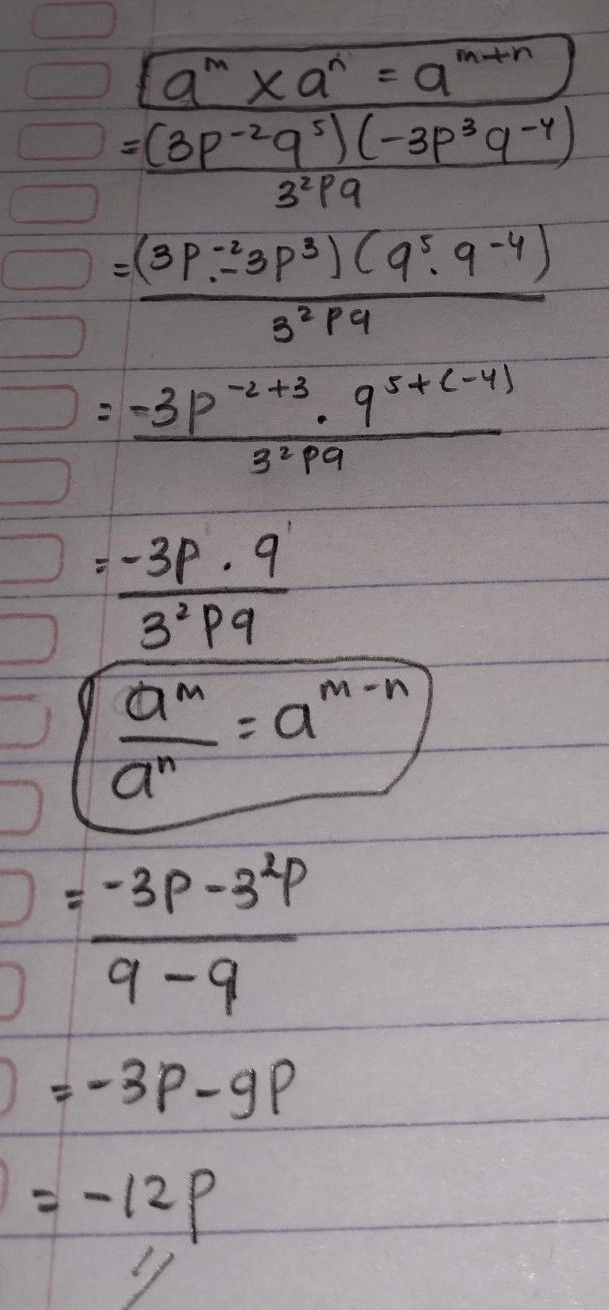 aᵐ × aⁿ = aᵐ⁺ⁿ
= (3p⁻²q⁵)(-3p³q⁻⁴)
3²pq
= (3p⁻² . -3p³)(q⁵ . q⁻⁴)
3²pq
= -3p⁻²⁺³ . q⁵⁺⁽⁻⁴⁾
3²pq
= -3p¹ . q¹
3²pq
aᵐ
aⁿ = aᵐ⁻ⁿ
= -3p - 3²p
q - q
= -3p - 9p
= -12p